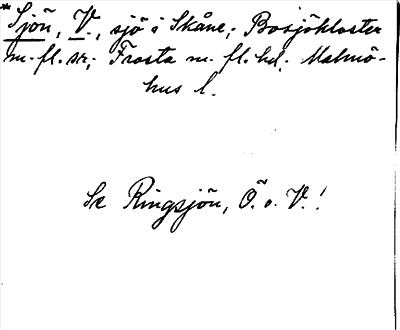 *Sjön, V., sjö i Skåne; Bosjökloster
m. fl. sn; Frosta m. fl. hd; Malmö-
hus l.
Se Ringsjön, Ö. o. V.!